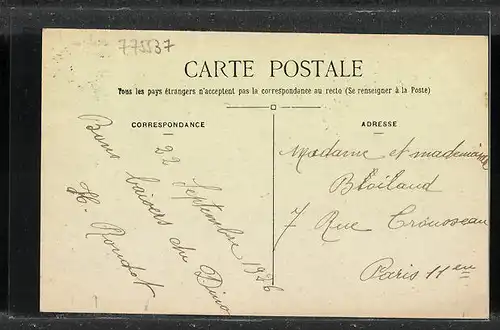 775537
CARTE POSTALE
Tous les pays étrangers n'acceptent pas la correspondance au recto (Se renseigner à la Poste)
CORRESPONDANCE
22 Septembre 1926
Bons baisers du
H.
ADRESSE
Madame et mademoiselle
7 Rue Crousseau
Paris 11 em